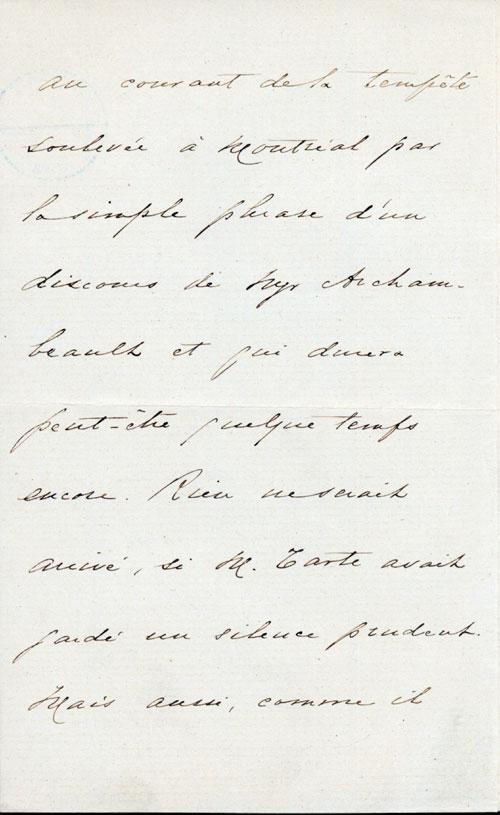 au courant de la tempête
soulevée à Montréal par
la simple phrase d'un
discours de Mgr Archam-
beault et qui durera
peut-être quelque temps
encore. Rien ne serait
arrivé, si M. Tarte avait
gardé un silence prudent.
Mais aussi, comme il